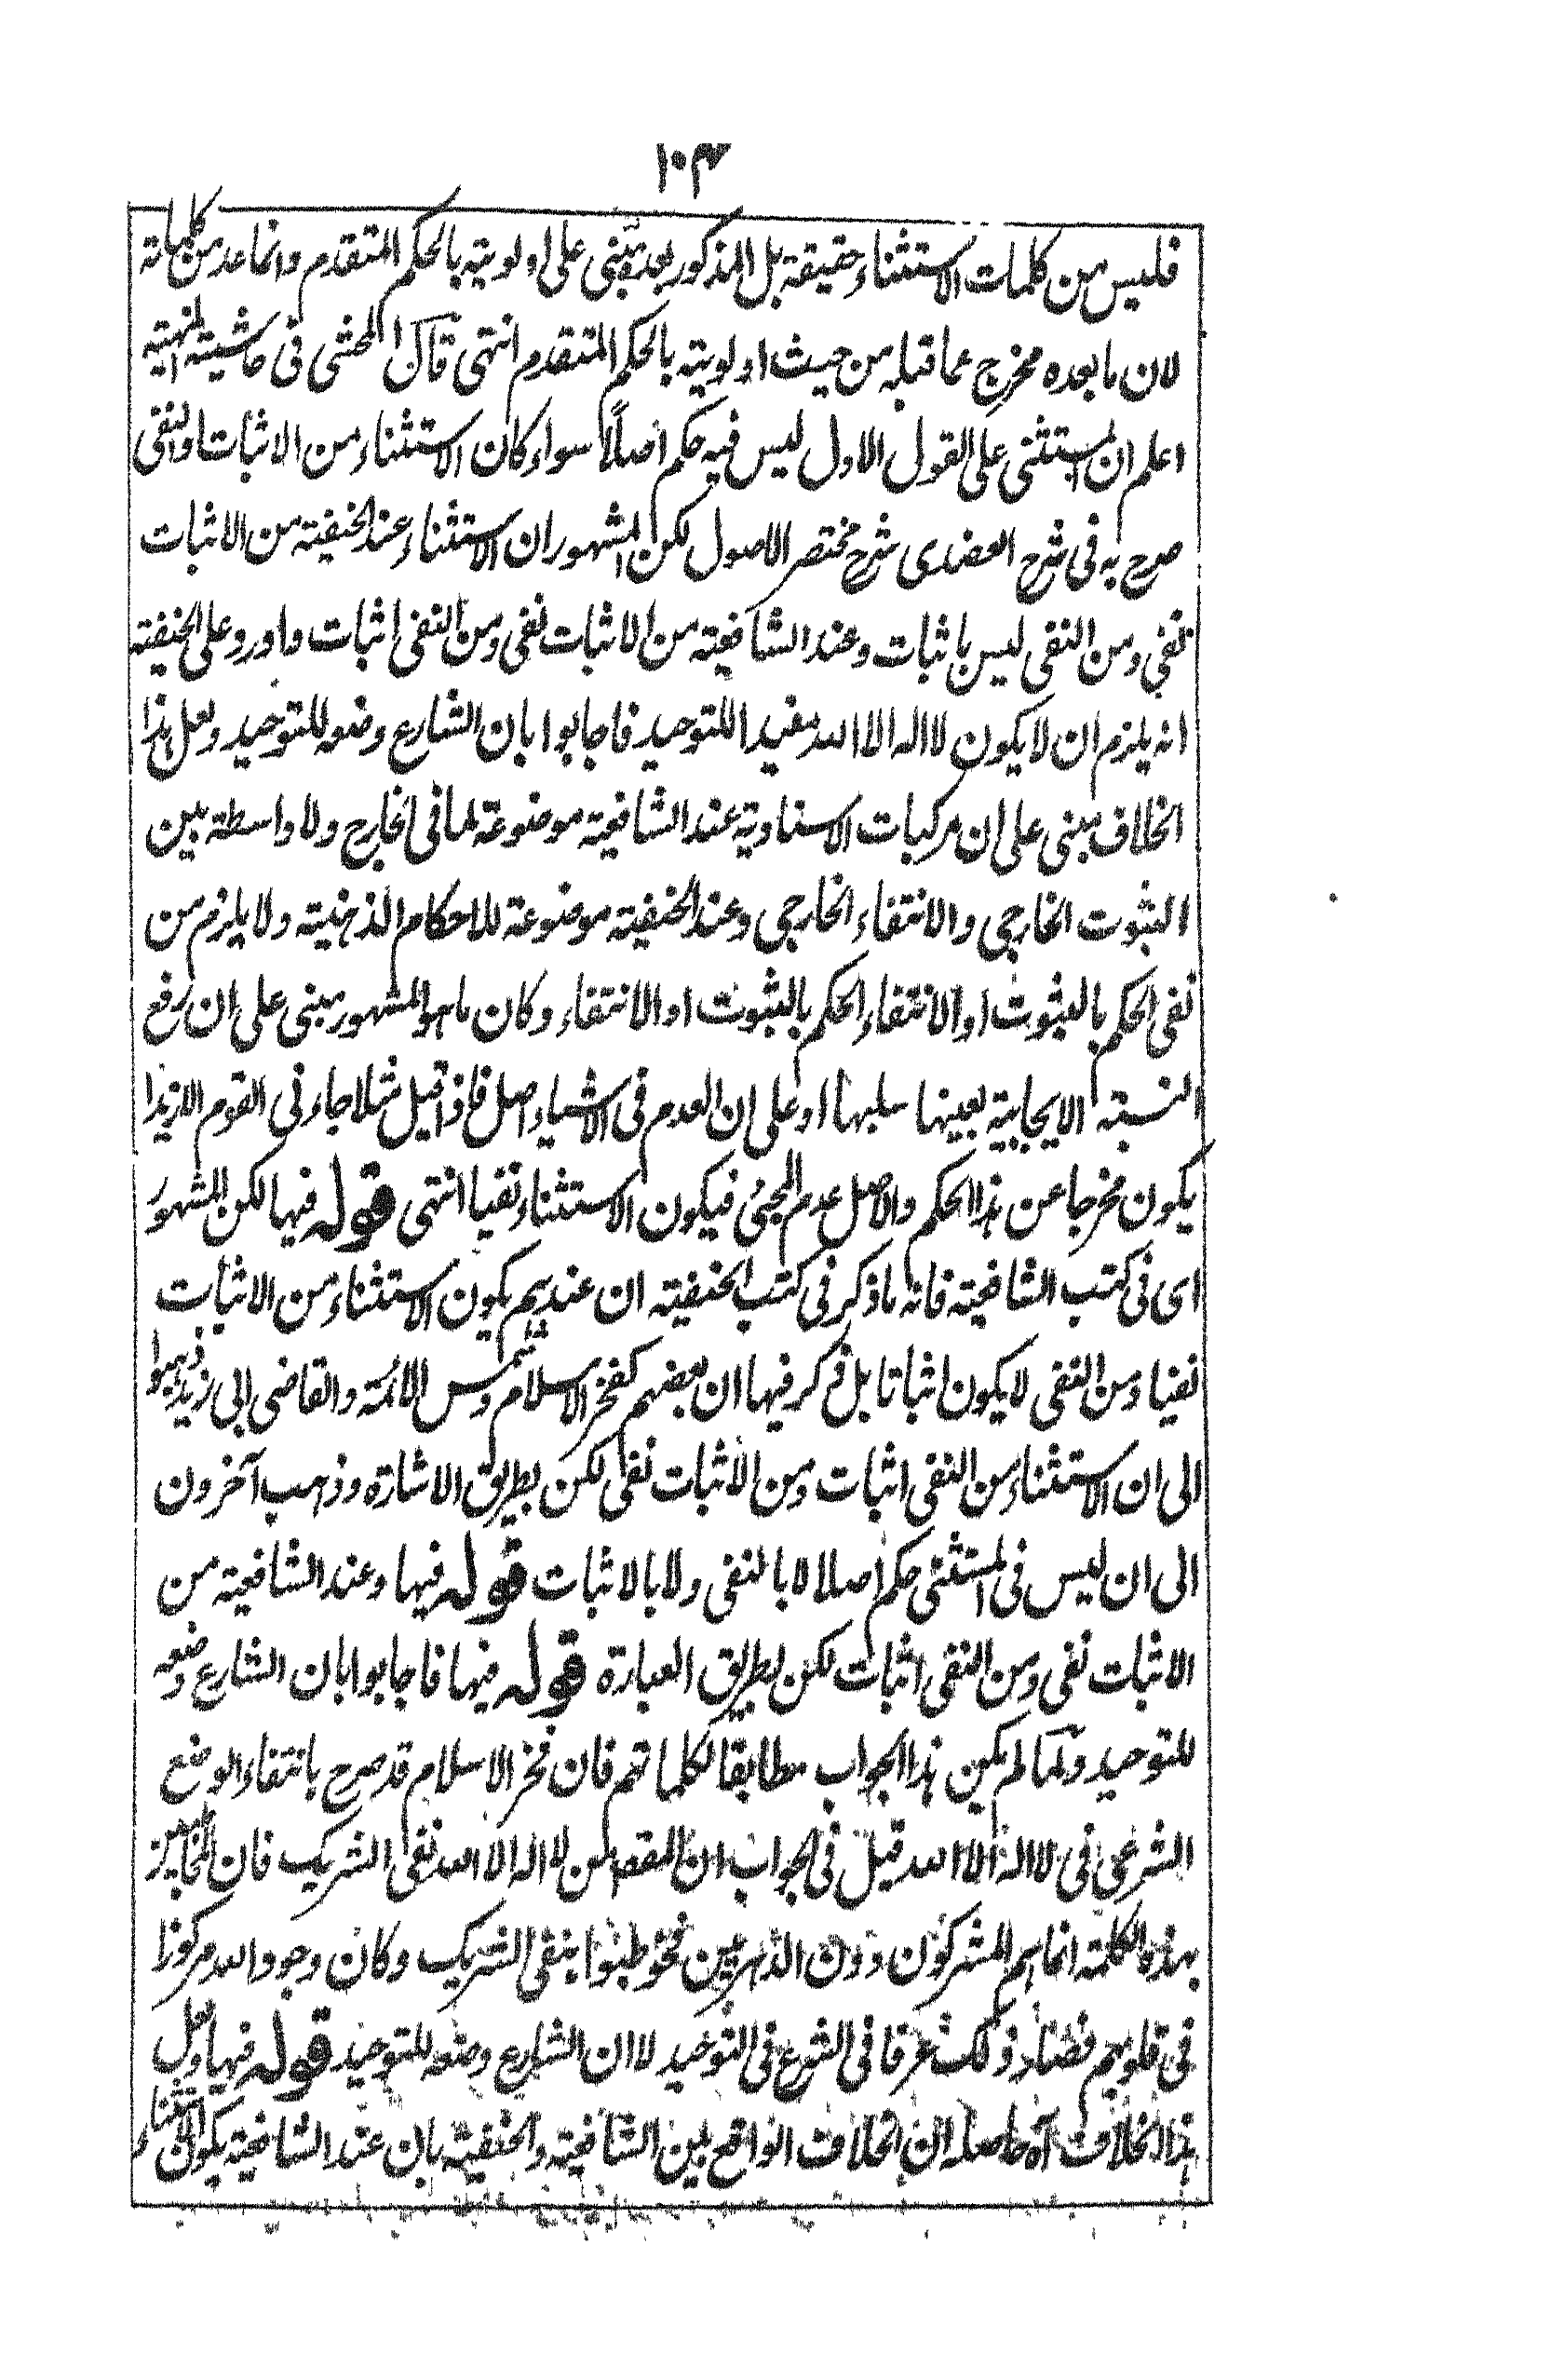 ۱۰۴
فليس من كلمات الاستثناء حقيقة بل المذكور بعده مبنى على اولويته بالحكم المتقدم وانما عد من كلماته
لان ما بعده مخرج عما قبله من حيث اولويته بالحكم المتقدم انتهى قال المحشى فى حاشيته المنهية
اعلم ان المستثنى على القول الاول ليس فيه حكم اصلاً سواء كان الاستثناء من الاثبات او النفى
صرح به فى شرح العضدى شرح مختصر الاصول لكن المشهور ان الاستثناء عند الحنفية من الاثبات
نفى ومن النفى ليس باثبات وعند الشافعية من الاثبات نفى ومن النفى اثبات واورد على الحنفية
انه يلزم ان لا يكون لا اله الا الله مفيدا للتوحيد فاجابوا بان الشارع وضعه للتوحيد ولعل هذا
الخلاف مبنى على ان مركبات الاسنادية عند الشافعية موضوعة لما فى الخارج ولا واسطة بين
الثبوت الخارجى والانتفاء الخارجى وعند الحنفية موضوعة للاحكام الذهنية ولا يلزم من
نفى الحكم بالثبوت او الانتفاء الحكم بالثبوت او الانتفاء وكان ما هو المشهور مبنى على ان رفع
النسبة الايجابية بعينها سلبها او على ان العدم فى الاشياء اصل فاذا قيل مثلا جاءنى القوم الا زيدا
يكون مخرجا عن هذا الحكم والاصل عدم المجئ فيكون الاستثناء نفيا انتهى قوله فيها لكن المشهور
اى فى كتب الشافعية فانه ما ذكر فى كتب الحنفية ان عندهم يكون الاستثناء من الاثبات
نفيا ومن النفى لا يكون اثباتا بل ذكر فيها ان بعضهم كفخر الاسلام وشمس الائمة والقاضى ابى زيد ذهبوا
الى ان الاستثناء من النفى اثبات ومن الاثبات نفى لكن بطريق الاشارة وذهب آخرون
الى ان ليس فى المستثنى حكم اصلا لا بالنفى ولا بالاثبات قوله فيها وعند الشافعية من
الاثبات نفى ومن النفى اثبات لكن بطريق العبارة قوله فيها فاجابوا بان الشارع وضعه
للتوحيد ولما لم يكن هذا الجواب مطابقا لكلماتهم فان فخر الاسلام قد صرح بانتفاء الوضع
الشرعى فى لا اله الا الله قيل فى الجواب ان المقص من لا اله الا الله نفى الشريك فان المخاطبين
بهذه الكلمة انما هم المشركون دون الدهريين فخوطبوا بنفى الشريك وكان وجود الله مركوزا
فى قلوبهم فصار ذلك عرفا فى الشرع فى التوحيد لا ان الشارع وضعه للتوحيد قوله فيها ولعل
هذا الخلاف آه حاصله ان الخلاف الواقع بين الشافعية والحنفية بان عند الشافعية يكون الاستثناء